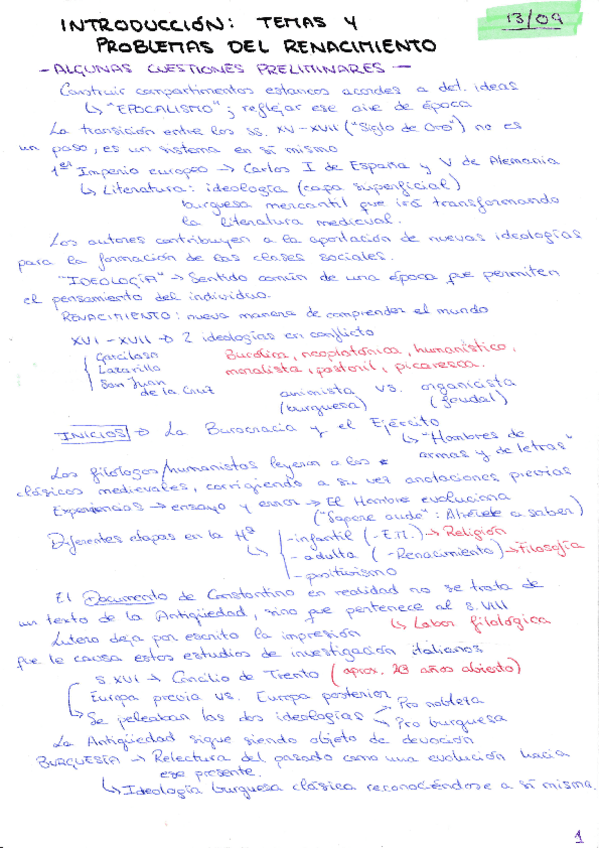 INTRODUCCIÓN: TEMAS Y
13/09
PROBLEMAS DEL RENACIMIENTO
- ALGUNAS CUESTIONES PRELIMINARES -
Construir compartimentos estancos acordes a det. ideas
↳ "EPOCALISMO"; reflejar ese aire de época
La transición entre los ss. XV-XVII ("Siglo de Oro") no es
un paso, es un sistema en sí mismo
1er Imperio europeo → Carlos I de España y V de Alemania
↳ Literatura: ideología (capa superficial)
burguesa mercantil que irá transformando
la literatura medieval.
Los autores contribuyen a la aportación de nuevas ideologías
para la formación de las clases sociales.
"IDEOLOGÍA" → Sentido común de una época que permiten
el pensamiento del individuo.
RENACIMIENTO: nueva manera de comprender el mundo
XVI - XVII → 2 ideologías en conflicto
Garcilaso
Lazarillo
San Juan
de la Cruz
Bucólica, neoplatónica, humanístico,
moralista, pastoril, picaresca.
animista vs. organicista
(burguesa) (feudal)
INICIOS → La Burocracia y el Ejército
↳ "Hombres de
armas y de letras"
Los filólogos/humanistas leyeron a los
clásicos medievales, corrigiendo a su vez anotaciones previas
Experiencias → ensayo y error → El Hombre evoluciona
("Sapere aude": Atrévete a saber)
Diferentes etapas en la Hª
↳ - infantil (- E.M.) → Religión
- adulta (- Renacimiento) → Filosofía
- positivismo
El Documento de Constantino en realidad no se trata de
un texto de la Antigüedad, sino que pertenece al s. VIII
↳ Labor filológica
Lutero deja por escrito la impresión
que le causa estos estudios de investigación italianos
S XVI → Concilio de Trento (aprox. 23 años abierto)
Europa previa vs. Europa posterior
↳ Se peleaban las dos ideologías
Pro nobleza
Pro burguesa
La Antigüedad sigue siendo objeto de devoción
BURGUESÍA → Relectura del pasado como una evolución hacia
ese presente.
↳ Ideología burguesa clásica reconociéndose a sí misma.
1